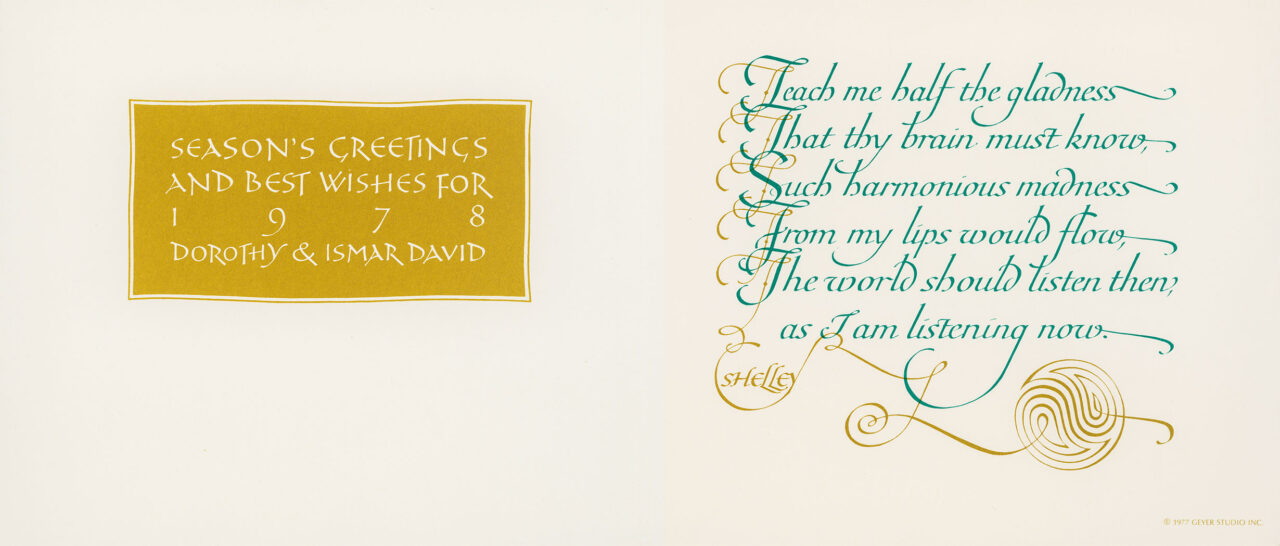 SEASON'S GREETINGS
AND BEST WISHES FOR
1 9 7 8
DOROTHY & ISMAR DAVID
Teach me half the gladness
That thy brain must know,
Such harmonious madness
From my lips would flow,
The world should listen then,
as I am listening now.
SHELLEY
© 1977 GEYER STUDIO INC.